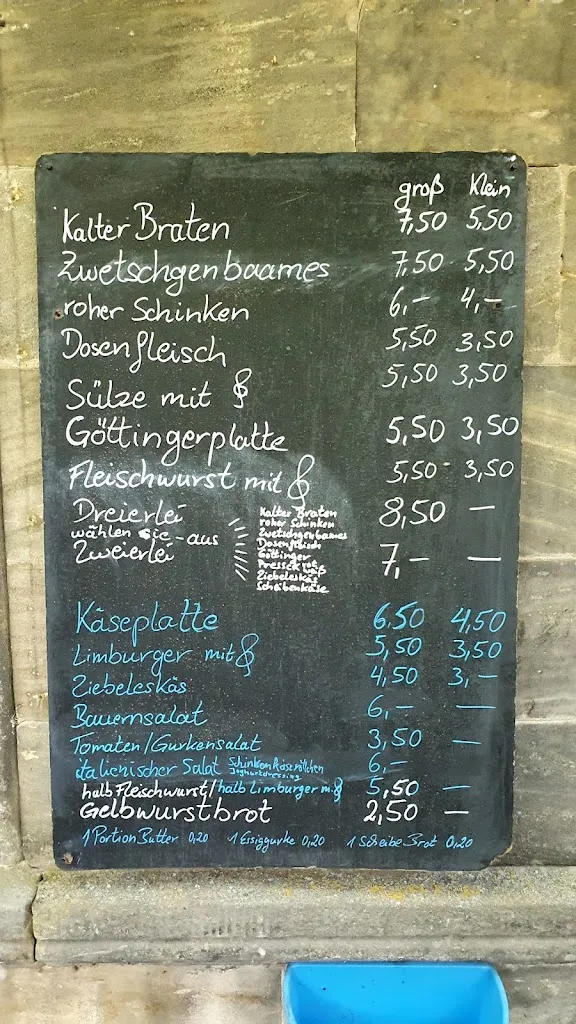 groß Klein
Kalter Braten 7,50 5,50
Zwetschgenbaames 7,50 5,50
roher Schinken 6,- 4,-
Dosenfleisch 5,50 3,50
Sülze mit 𝄞 5,50 3,50
Göttingerplatte 5,50 3,50
Fleischwurst mit 𝄞 5,50 3,50
Dreierlei 8,50 —
wählen Sie - aus
Zweierlei 7,- —
Kalter Braten
roher Schinken
Zwetschgenbaames
Dosenfleisch
Göttinger
Pressek rot weiß
Ziebeleskäs
Scheibenkäse
Käseplatte 6.50 4,50
Limburger mit 𝄞 5,50 3,50
Ziebeleskäs 4,50 3,—
Bauernsalat 6,- —
Tomaten/Gurkensalat 3,50 —
italienischer Salat Schinkenkäseröllchen 6,-
Joghurtdressing
halb Fleischwurst/halb Limburger m. 𝄞 5,50 —
Gelbwurstbrot 2,50 —
1 Portion Butter 0,20 1 Essiggurke 0,20 1 Scheibe Brot 0,20